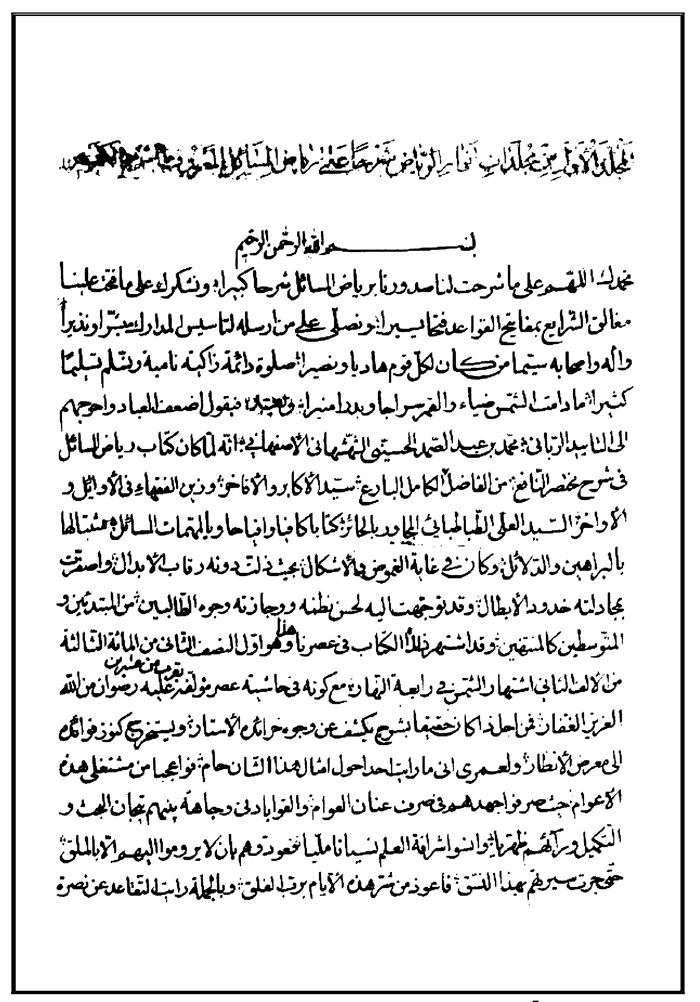 المجلد الاول من مجلدات انوار الرياض شرحا على رياض المسائل
بسم الله الرحمن الرحيم
نحمدك اللهم على ما شرحت لنا صدورنا برياض المسائل شرحا كبيرا ونشكرك على ما فتحت علينا
مغالق الشرايع بمفاتيح القواعد فتحا يسيرا ونصلى على من ارسله لتاسيس المدارك مبشرا ونذيرا
واله واصحابه سيما من كان لكل قوم هاديا ونصيرا صلوة دائمة زاكية نامية ونسلم تسليما
كثيرا ما دامت الشمس ضياء والقمر سراجا وبدرا منيرا فيقول اضعف العباد واحوجهم
الى التاييد الربانى محمد بن عبد الصمد الحسينى الشهشهانى الاصفهانى انه لما كان كتاب رياض المسائل
فى شرح مختصر النافع من الفاضل الكامل البارع سيد الاكابر والافاخر وزين الفقهاء فى الاوائل و
الاواخر السيد العلى الطباطبائى المجاور بالحائر كتابا كافيا وافيا حاويا لمهمات المسائل مثبتا لها
بالبراهين والدلائل وكان فى غاية الغموض والاشكال بحيث ذلت دونه رقاب الابدال واصفرت
بمجادلته خدود الابطال وقد توجهت اليه لحسن نظمه ووجازته وجوه الطالبين من المبتدئين و
المتوسطين كالمنتهين وقد اشتهر ذلك الكتاب فى عصرنا هذا وهو اول النصف الثانى من المائة الثالثة
من الالف الثانى اشتهار الشمس فى رابعة النهار مع كونه فى حاشية عصر مؤلفه عليه رضوان من الله
العزيز الغفار فمن اجل ذا كان حقيقا بشرح يكشف عن وجوه خرائده الاستار ويستخرج كنوز فوائده
الى معرض الانظار ولعمرى انى ما رايت احدا حول امثال هذا الشان حام فوا عجبا من مشتغلى هذه
الاعوام حيث صرفوا جهدهم فى صرف عنان العوام والقوا بادنى وجاهة بينهم تيجان البحث و
التكميل وراءهم ظهريا ونسوا شرافة العلم نسيانا مليا وهم بان لا يروموا اليهم الا بالملق
حتى جرت سيرتهم بهذا النسق فاعوذ من شر هذه الايام برب الفلق وبالجملة رايت التقاعد عن نصرة